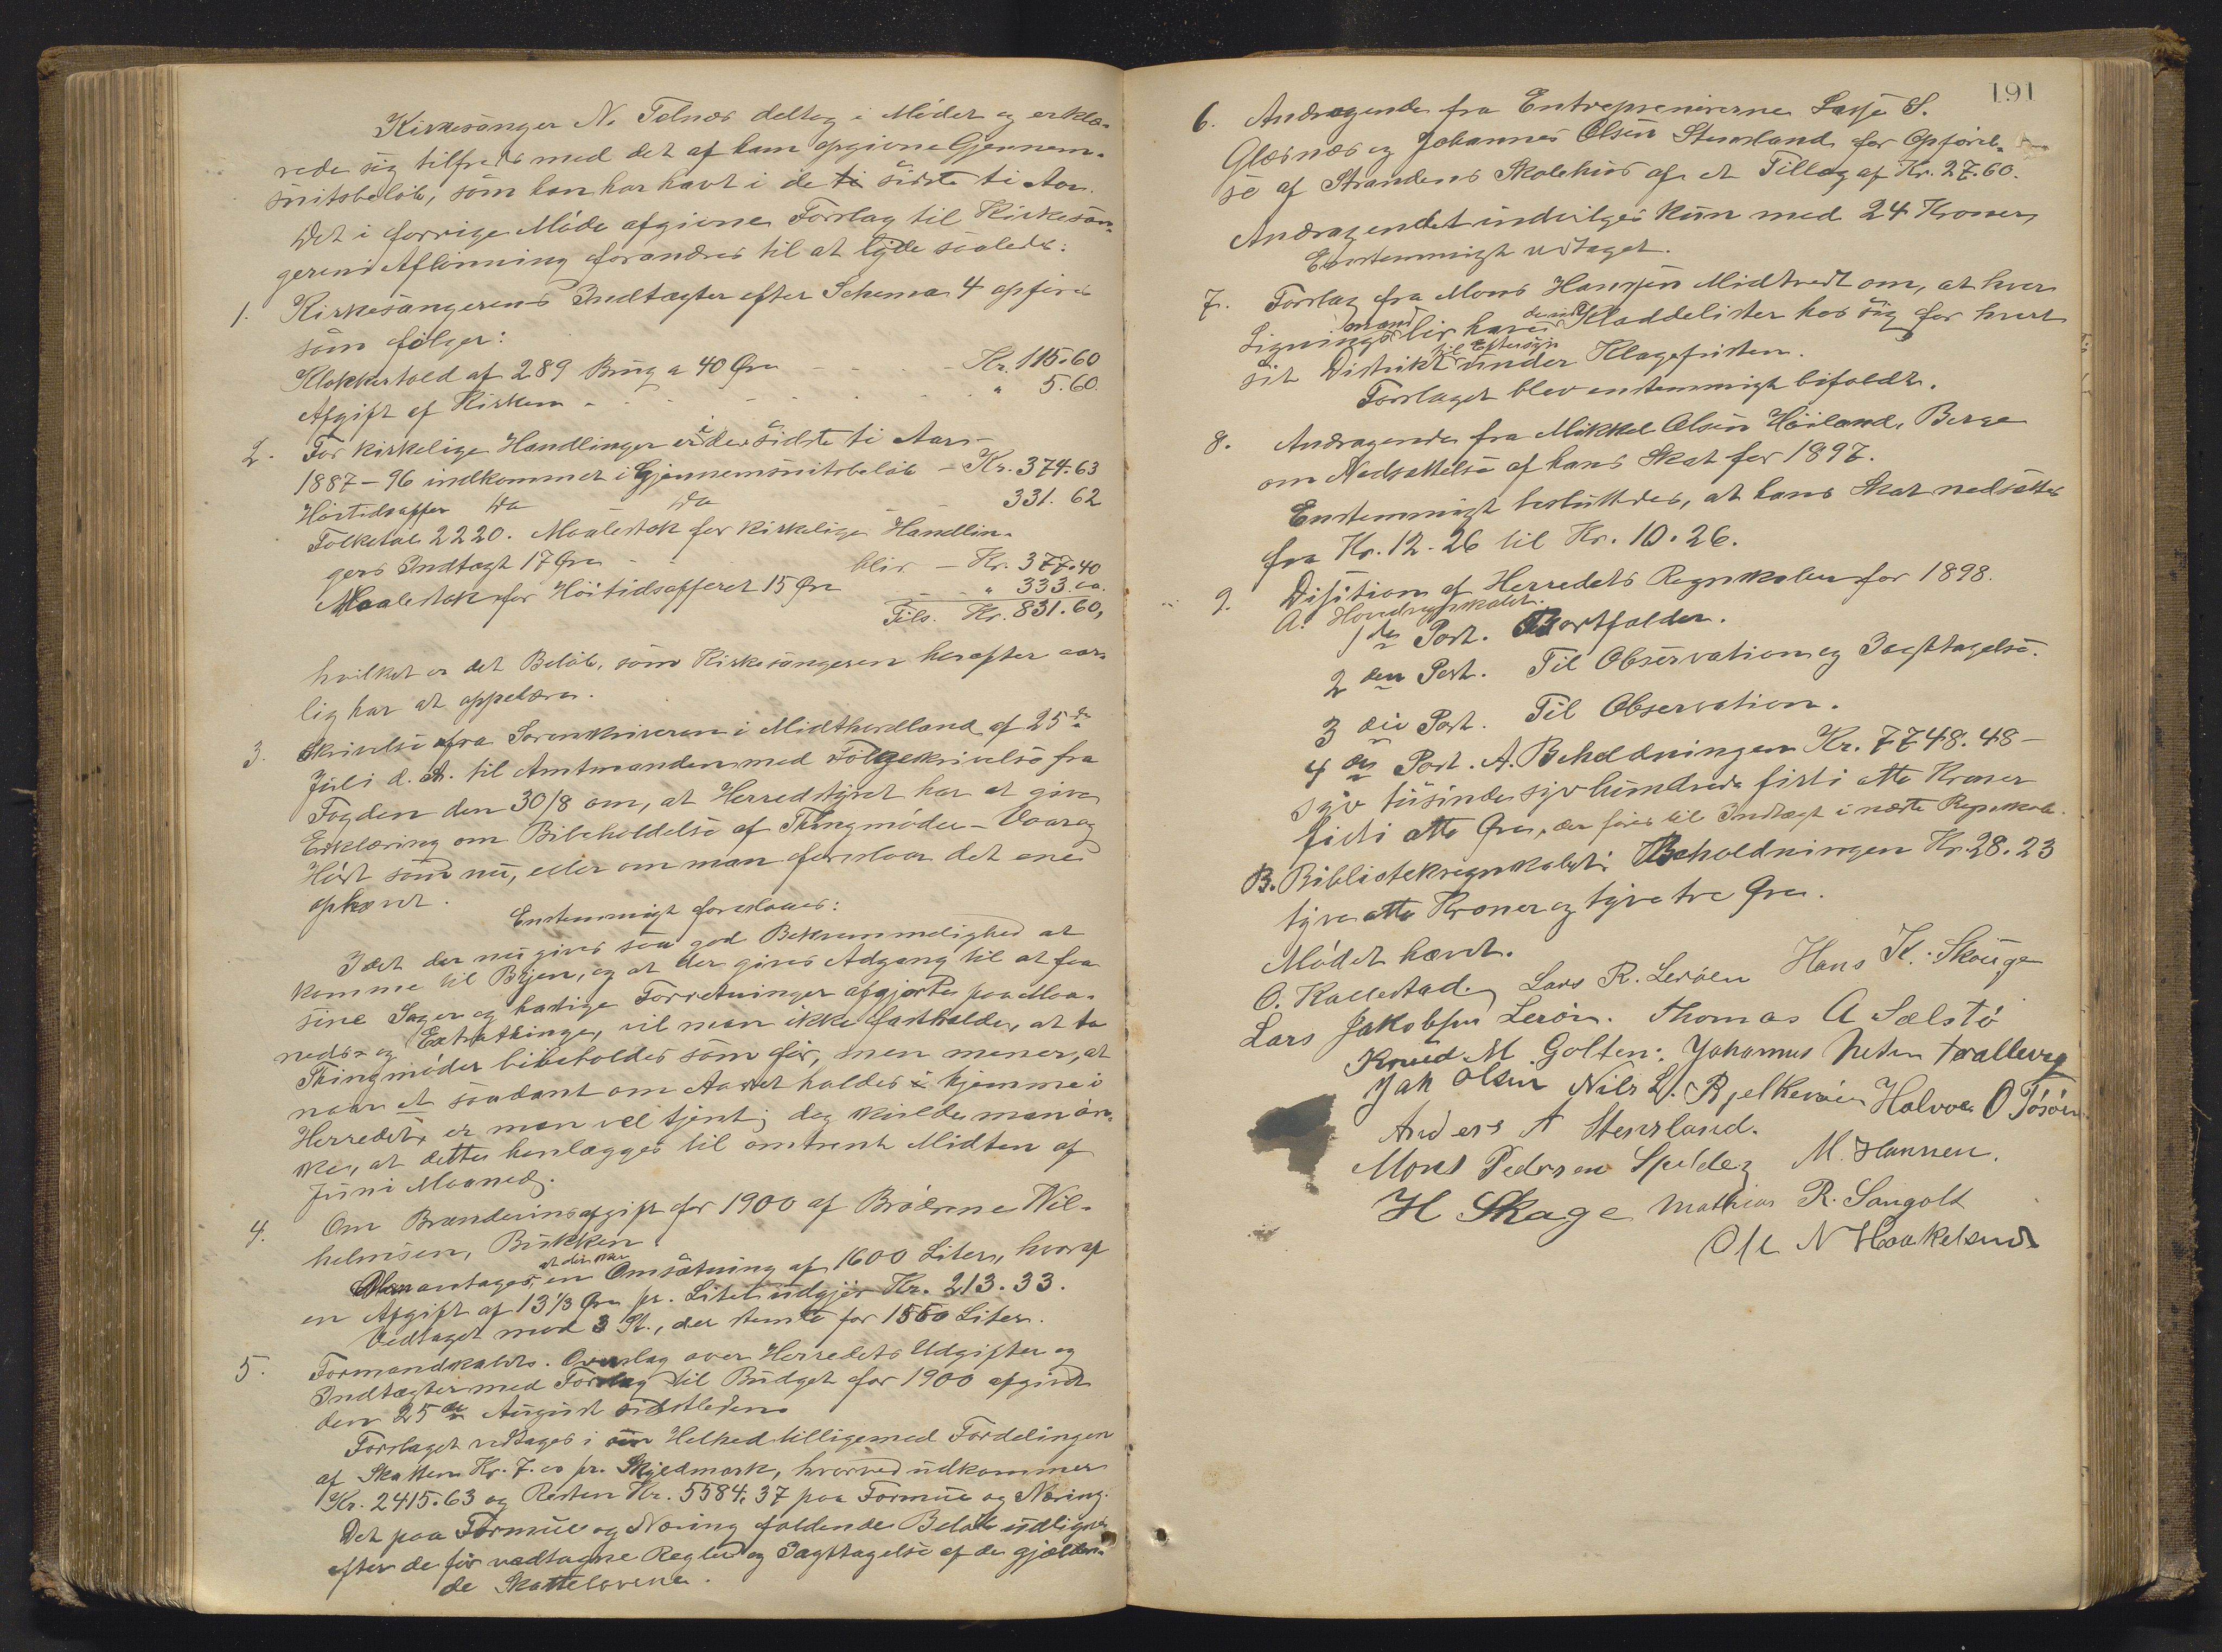 Kirkesanger N. Telnes deltog i Mödet og erklæ-
rede sig tilfreds med det af ham opgivne Gjennem-
snitsbelöb, som han har havt i de ti sidste ti Aar.
Det i forrige Möde afgivne Forslag til Kirkesan-
gerens Aflönning forandres til at lyde saaledes:
1. Kirkesangerens Indtægter efter Schema 4 opföres
som fölger:
Klokkertold af 289 Brug a 40 Øre - - - - Kr. 115.60
Afgift af Kirken - - - - - - " 5.60
2. For kirkelige Handlinger i de sidste ti Aar-
1887-96 indkommet i Gjennemsnitsbelöb - Kr. 374.63
Höitidsoffer do do 331.62
Folketal 2220. Maalestok for kirkelige Handlin-
gers Indtægt 17 Øre - bliv - Kr. 377.40
Maalestok for Höitidsofferet 15 Øre - - " 333.00
Tils. Kr. 831.60,
hvilket er det Belöb, som Kirkesangeren herefter aar-
lig har at oppebære.
3. Skrivelse fra Sorenskriveren i Midthordland af 25de
Juli d. A. til Amtmanden med Fölgeskrivelse fra
Fogden den 30/8 om, at Herredstyret har at give
Erklæring om Bibeholdelse af Thingmöder - Vaar og
Höst som nu, eller om man foreslaar det ene
ophævet.
Enstemmigt foreslaaes:
Idet der nu gives saa god Bekvemmelighed at
komme til Byen, og at der gives Adgang til at faa
sine Sager og hastige Forretninger afgjorte paa Maa-
neds- og Extrathinge, vil man ikke fastholde, at to
Thingmöder bibeholdes som för, men mener, at
naar et saadant om Aaret holdes i hjemme i
Herredet, er man vel tjent; dog skulde man ön-
ske, at dette henlægges til omtrent Midten af
Juni Maaned.
4. Om Brændevinsafgift for 1900 af Brödrene Wil-
helmsen, Bukken.
at der sker
Man antages, en Omsætning af 1600 Liter, hvoraf
en Afgift af 13 1/3 Øre pr. Liter udgjör Kr. 213.33.
Vedtaget mod 3 St., der stemte for 1550 Liter.
5. Formandskabets Overslag over Herredets Udgifter og
Indtægter med Forslag til Budget for 1900 afgivet
den 25de August sidstleden
Forslaget vedtages i sin Helhed tilligemed Fordelingen
af Skatten Kr. 7.00 pr. Skyldmark, hvorved udkommer
Kr. 2415.63 og Resten Kr. 5584.37 paa Formue og Næring.
Det paa Formue og Næring faldende Belöb udlignes
efter de för vedtagne Regler og Iagttagelse af de gjælden-
de Skattelovene.
191
6. Andragende fra Entreprenörerne Lasse S.
Glæsnæs og Johannes Olsen Stensland for Opförel-
se af Strandens Skolehus af et Tillæg af Kr. 27.60.
Andragendet indvilges kun med 24 Kroner,
Enstemmigt vedtaget.
7. Forslag fra Mons Hansen Midtvedt om, at hver
mand de nye
Lignings blir have Kladdelister hos sig for hvert
til Eftersyn
sit Distrikt under Klagefristen.
Forslaget blev enstemmigt bifaldt.
8. Andragende fra Mikkel Olsen Höiland, Berge
om Nedsættelse af hans Skat for 1897.
Enstemmigt besluttedes, at hans Skat nedsættes
fra Kr. 12.26 til Kr. 10.26.
9. Decision af Herredets Regnskaber for 1898.
A. Hovedregnskabet.
1ste Post. Bortfalder.
2den Post. Til Observation og Iagttagelse.
3die Post. Til Observation.
4de Post. A. Beholdningen Kr. 7748.48 -
syv tusinde syv hundrede firti otte Kroner
firti otte Øre, der föres til Indtægt i næste Regnskab.
B. Bibliotekregnskabet: Beholdningen Kr. 28.23
tyve otte Kroner og tyve tre Øre.
Mödet hævet.
O. Kallestad Lars R. Leröen Hans K. Skouge
Lars Jakobsen Leröen. Thomas A Sælstö
Knud M. Golten. Johannes
Jah Olsen Nils L. Bjelkeröen Halvor O Tösöen
Anders A Stensland.
Mons Pedersen Spelde M. Hannen.
H Skage Mathias R. Sangolt
Ole N Haakelsund